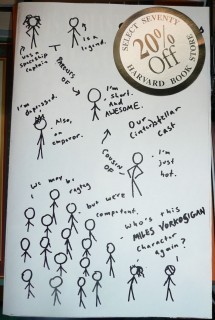 SELECT SEVENTY
20%
Off
HARVARD BOOK STORE
was a
spaceship
captain
is a
legend.
PARENTS
OF
I'm
short.
And
AWESOME.
I'm depressed.
Also,
an
emperor.
Our
(inter)stellar
cast
COUSIN
OF
I'm
just
hot.
We may be ragtag
but we're
competent.
Who's this
MILES VORKOSIGAN
character
again?